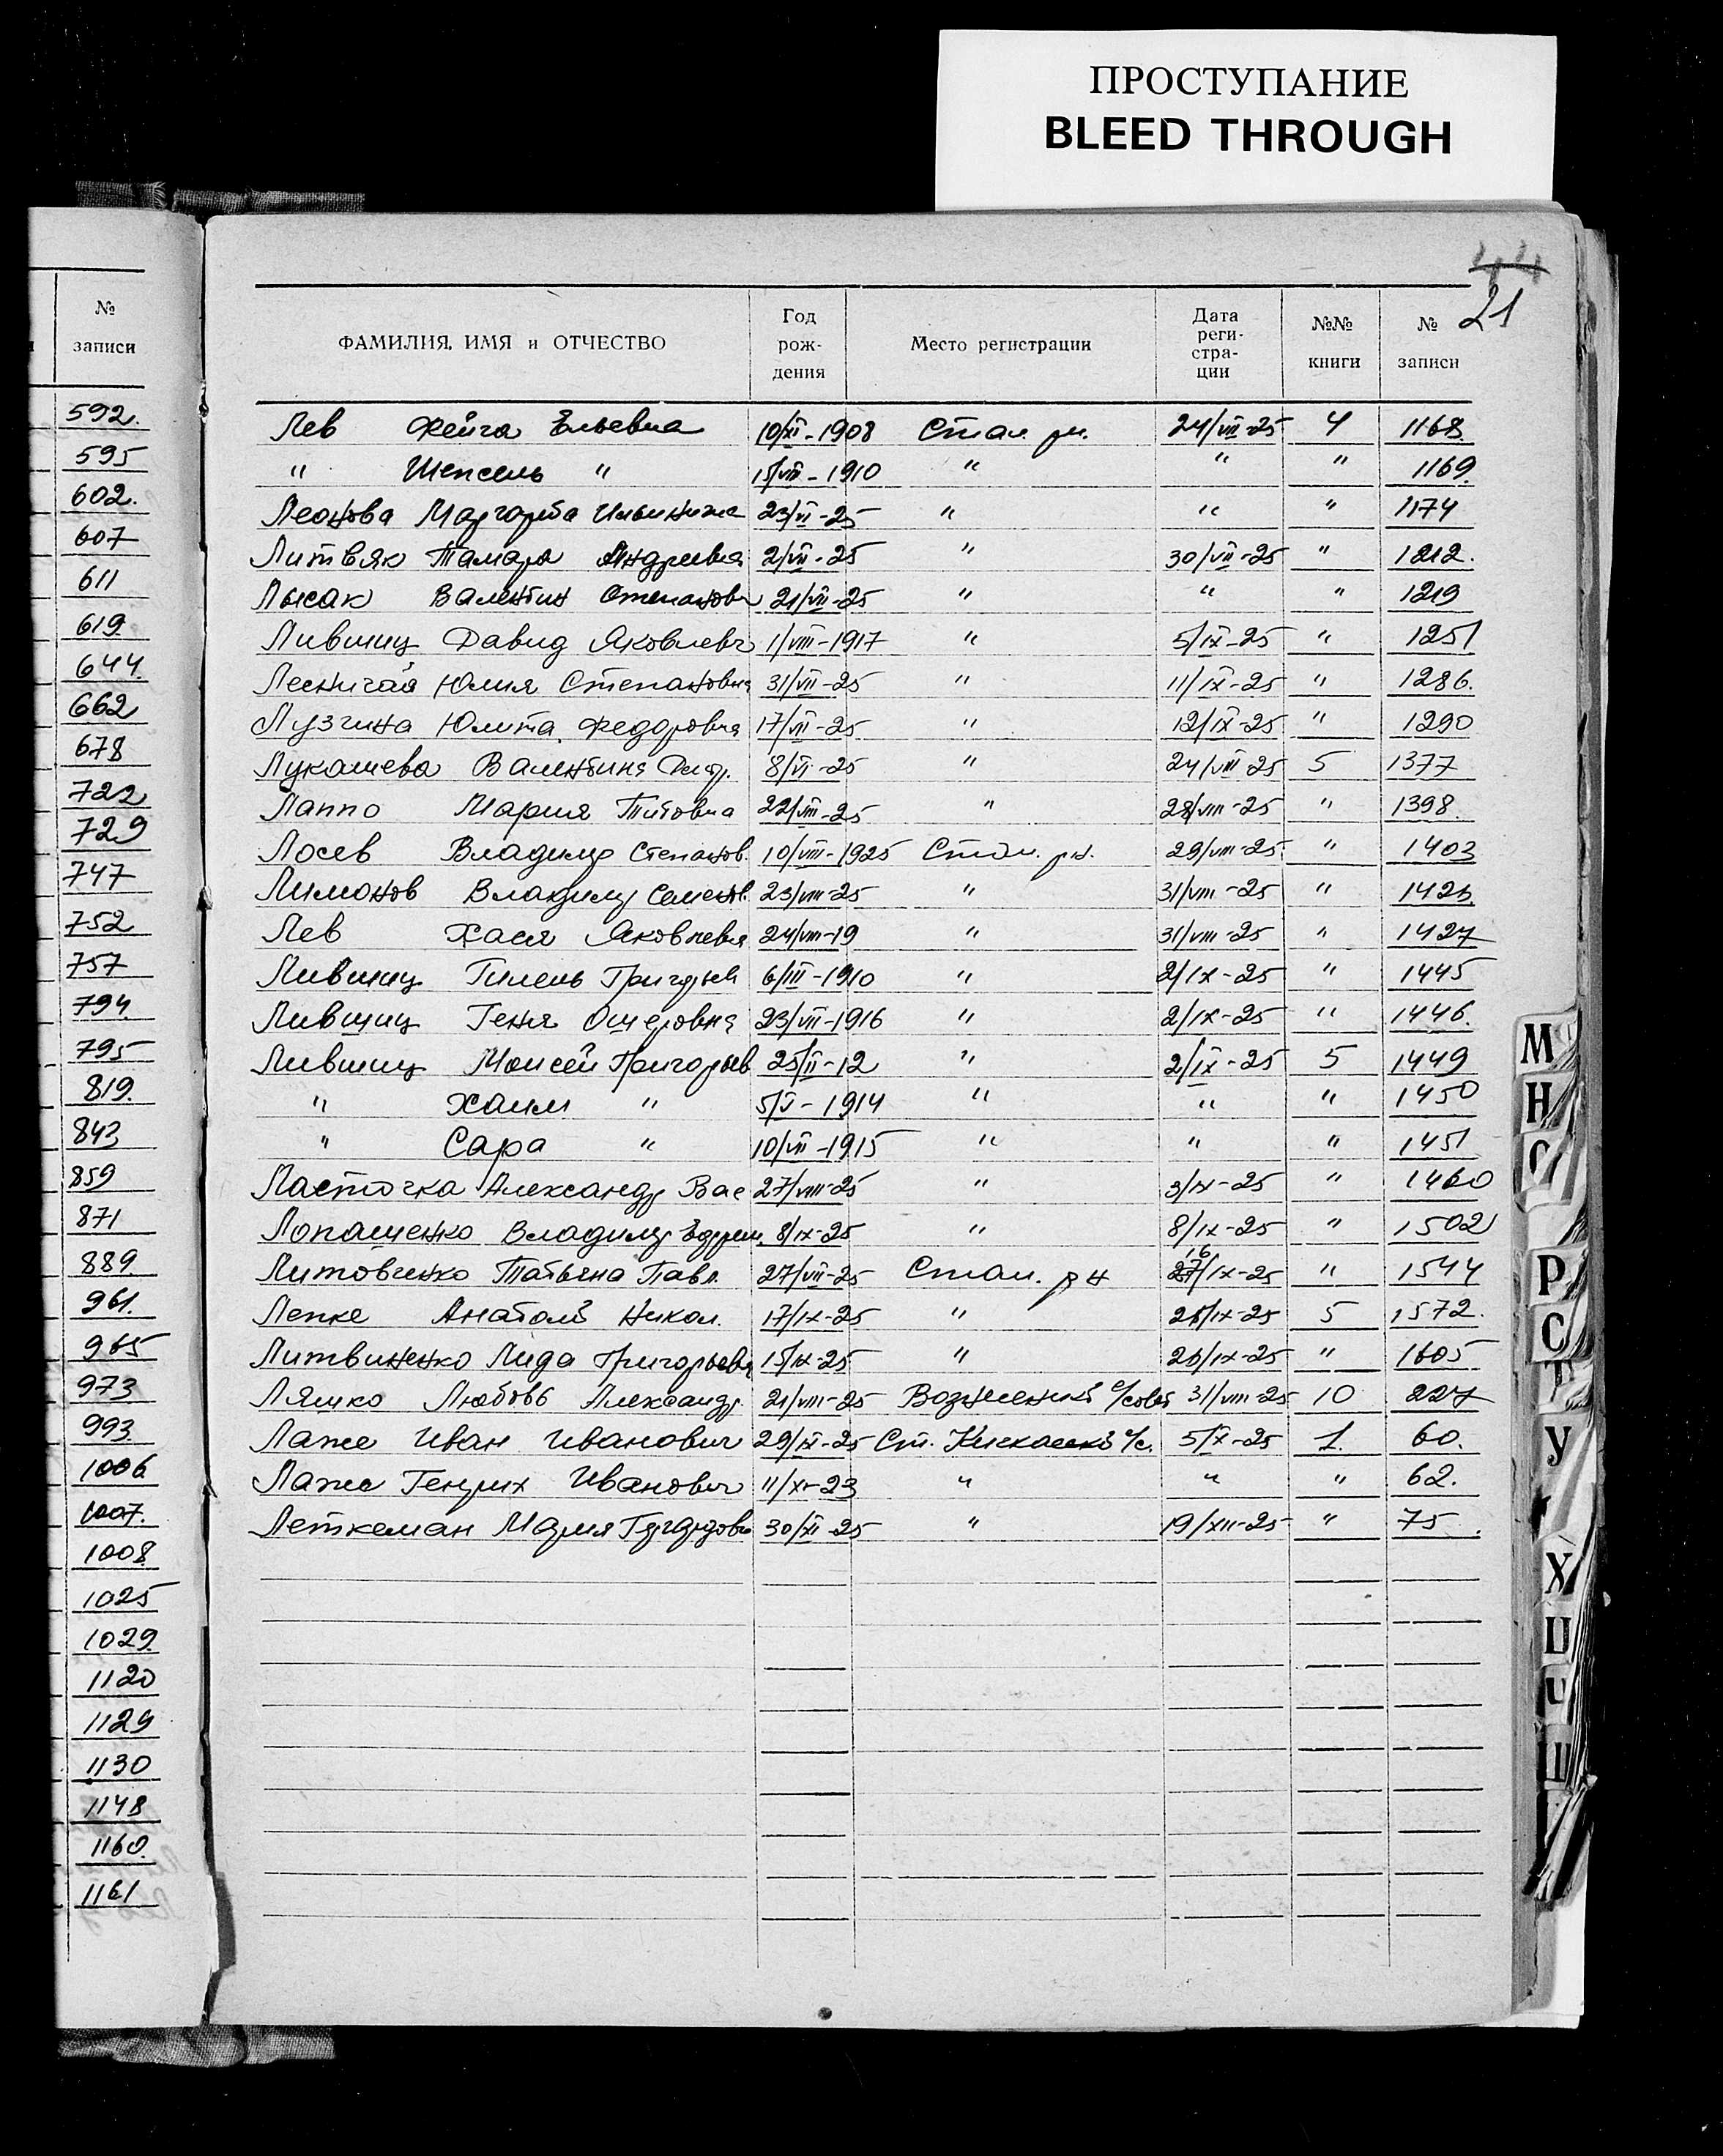 ПРОСТУПАНИЕ
BLEED THROUGH
44
21
№
записи
592.
595
602.
607
611
619.
644.
662
678
722
729
747
752
757
794.
795
819.
843
859
871
889.
961.
965
973
993.
1006
1007.
1008.
1025
1029.
1120
1129
1130
1148
1160.
1161
ФАМИЛИЯ, ИМЯ и ОТЧЕСТВО Год рож- дения Место регистрации Дата реги- стра- ции №№ книги № записи
Лев Фейга Ельевна 10/XI-1908 Стал. рн. 24/VII-25 4 1168.
" Шепсель " 15/VIII-1910 " " " 1169.
Леонова Маргарита Ильинична 23/VI-25 " " " 1174
Литвяк Тамара Андреевна 2/VII-25 " 30/VII-25 " 1212.
Лысак Валентин Степанович 21/VII-25 " " " 1219
Лившиц Давид Яковлевич 1/VIII-1917 " 5/IX-25 " 1251
Лесничая Юлия Степановна 31/VII-25 " 11/IX-25 " 1286.
Лузгина Юлита Федоровна 17/VII-25 " 12/IX-25 " 1290
Лукашева Валентина Дмтр. 8/VI-25 " 24/VIII-25 5 1377
Лаппо Мария Титовна 22/VIII-25 " 28/VIII-25 " 1398.
Лосев Владимир Степанов. 10/VIII-1925 Стал. рн. 29/VIII-25 " 1403
Лимонов Владимир Семенов. 23/VIII-25 " 31/VIII-25 " 1423.
Лев Хася Яковлевна 24/VIII-19 " 31/VIII-25 " 1427
Лившиц Гилель Григорьев 6/III-1910 " 2/IX-25 " 1445
Лившиц Геня Ошеровна 23/VII-1916 " 2/IX-25 " 1446.
Лившиц Моисей Григорьев 25/II-12 " 2/IX-25 5 1449
" Хаим " 5/V-1914 " " " 1450
" Сара " 10/VII-1915 " " " 1451
Ласточка Александр Вас 27/VIII-25 " 3/IX-25 " 1460
Лопашенко Владимир Ефрем. 8/IX-25 " 8/IX-25 " 1502
Литовченко Татьяна Павл. 27/VII-25 Стал. рн 16/IX-25 " 1544
Лепке Анатолй Никол. 17/IX-25 " 26/IX-25 5 1572.
Литвиненко Лида Григорьевна 15/IX-25 " 26/IX-25 " 1605
Ляшко Любовь Александр. 21/VIII-25 с/совет 31/VIII-25 10 227
Лаже Иван Иванович 29/IX-25 Ст. с/с. 5/X-25 1. 60.
Лаже Генрих Иванович 11/XI-23 " " " 62.
Леткеман Мария Гергардовн 30/XI-25 " 19/XII-25 " 75.
М
Н
О
Р
С
Т
У
Х
Ц
Ч
Ш